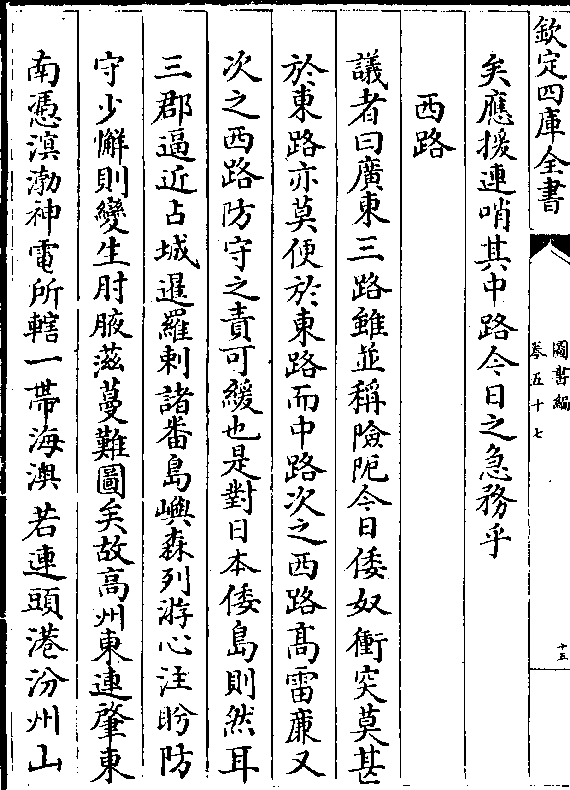 欽定四庫全書
圖書編
卷五十七
十五
矣應援連哨其中路今日之急務乎
西路
議者曰廣東三路雖並稱險阨今日倭奴衝突莫甚
於東路亦莫便於東路而中路次之西路高雷亷又
次之西路防守之責可緩也是對日本倭島則然耳
三郡逼近占城暹羅剌諸畨島嶼森列游心注盼防
守少懈則變生肘腋滋蔓難圖矣故高州東連肇東
南憑溟渤神電所轄一帶海澳若連頭港汾州山